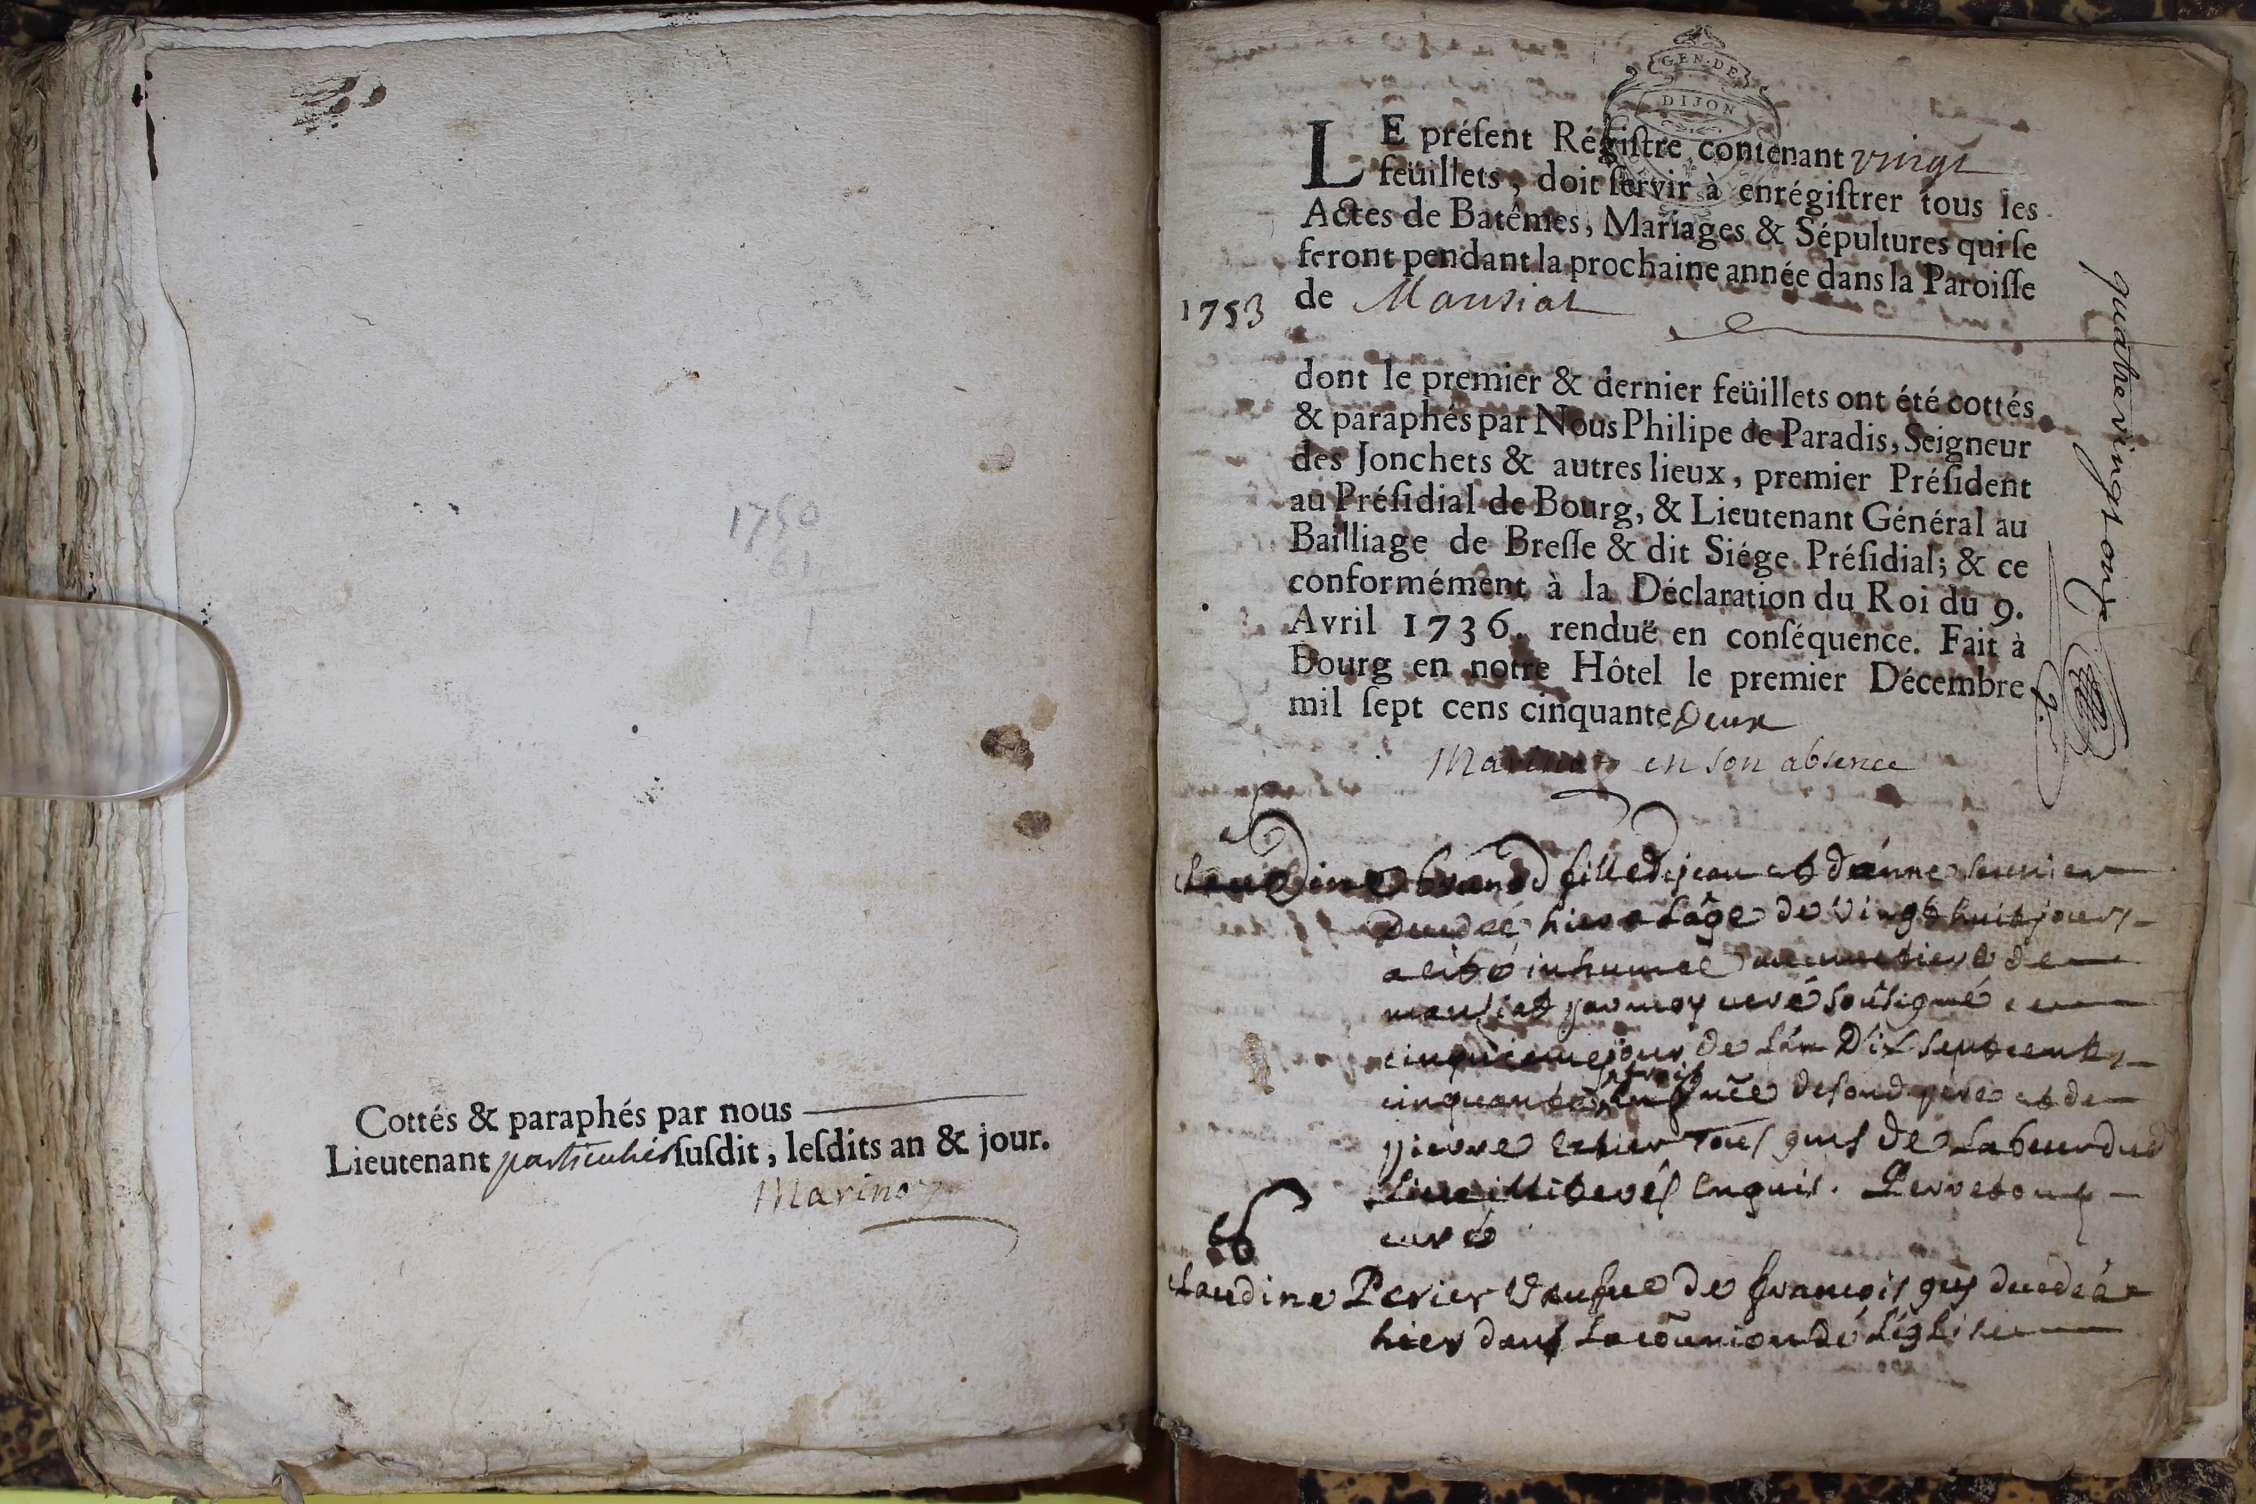 1750
61
1
Cottés & paraphés par nous
Lieutenant particulier ſuſdit, leſdits an & jour.
Marinon
GEN. DE
DIJON
LE préſent Régiſtre contenant vingt
feüillets, doit ſervir à enrégiſtrer tous les
Actes de Batêmes, Mariages & Sépultures qui ſe
feront pendant la prochaine année dans la Paroiſſe
1753 de Mantiat
dont le premier & dernier feüillets ont été cottés
& paraphés par Nous Philipe de Paradis, Seigneur
des Jonchets & autres lieux, premier Préſident
au Préſidial de Bourg, & Lieutenant Général au
Bailliage de Breſſe & dit Siége Préſidial; & ce
conformément à la Déclaration du Roi du 9.
Avril 1736. renduë en conſéquence. Fait à
Bourg en notre Hôtel le premier Décembre
mil ſept cens cinquante Deux
en son absence
quatre vingt onze
Claudine brand fille de jean et d'anne
hier a lâge de vingt huit jours
a eité inhumeé au cimetiere de
mantiat par moy curé soûsigné
cinquieme jour de l'an Dix sept cents
cinquante trois
pere et de
pierre tous
illiterés enquis.
curé
Claudine Perier veufue de françois guy
hier dans la cōunion de l'église